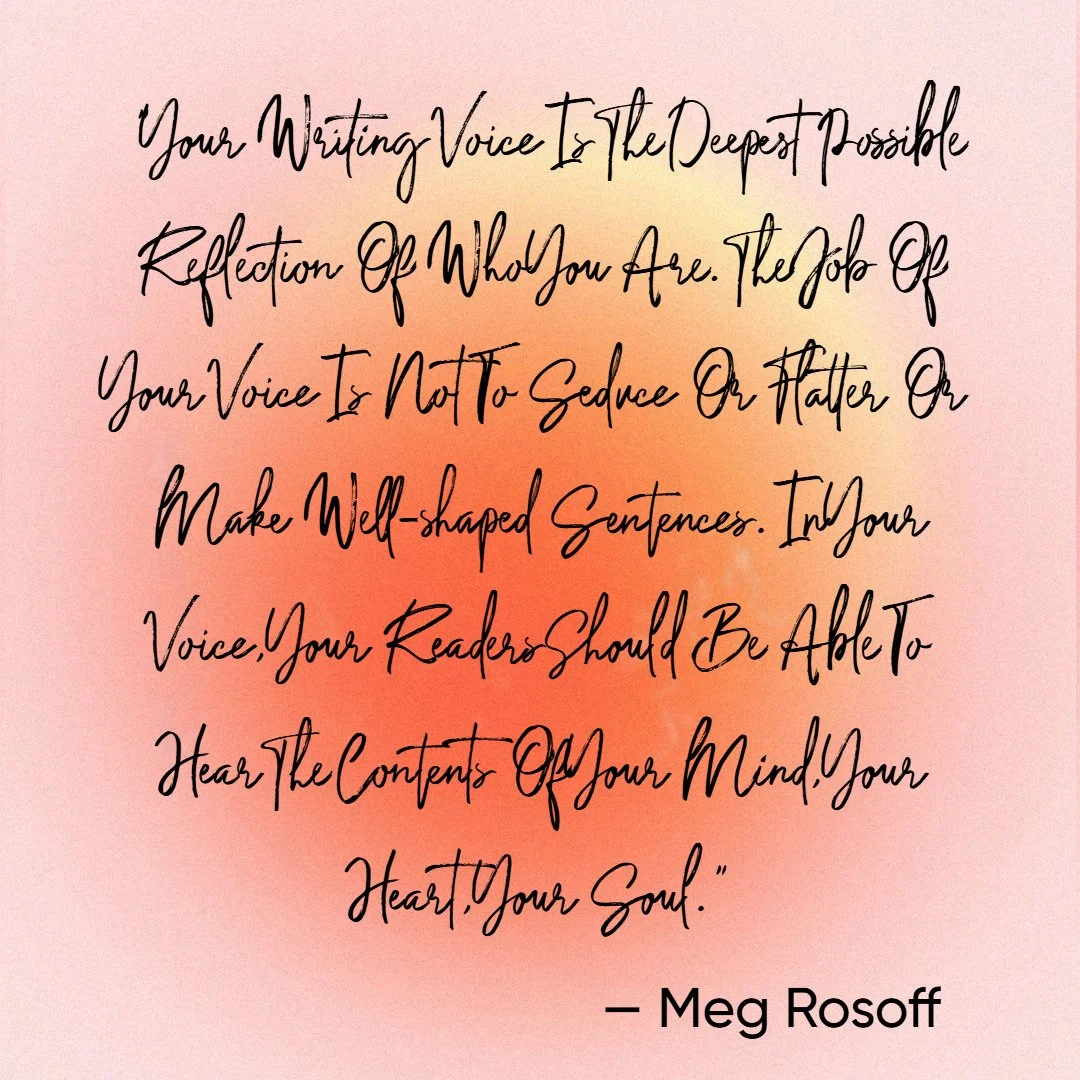 "Your Writing Voice Is The Deepest Possible
Reflection Of Who You Are. The Job Of
Your Voice Is Not To Seduce Or Flatter Or
Make Well-shaped Sentences. In Your
Voice, Your Readers Should Be Able To
Hear The Contents Of Your Mind, Your
Heart, Your Soul."
— Meg Rosoff